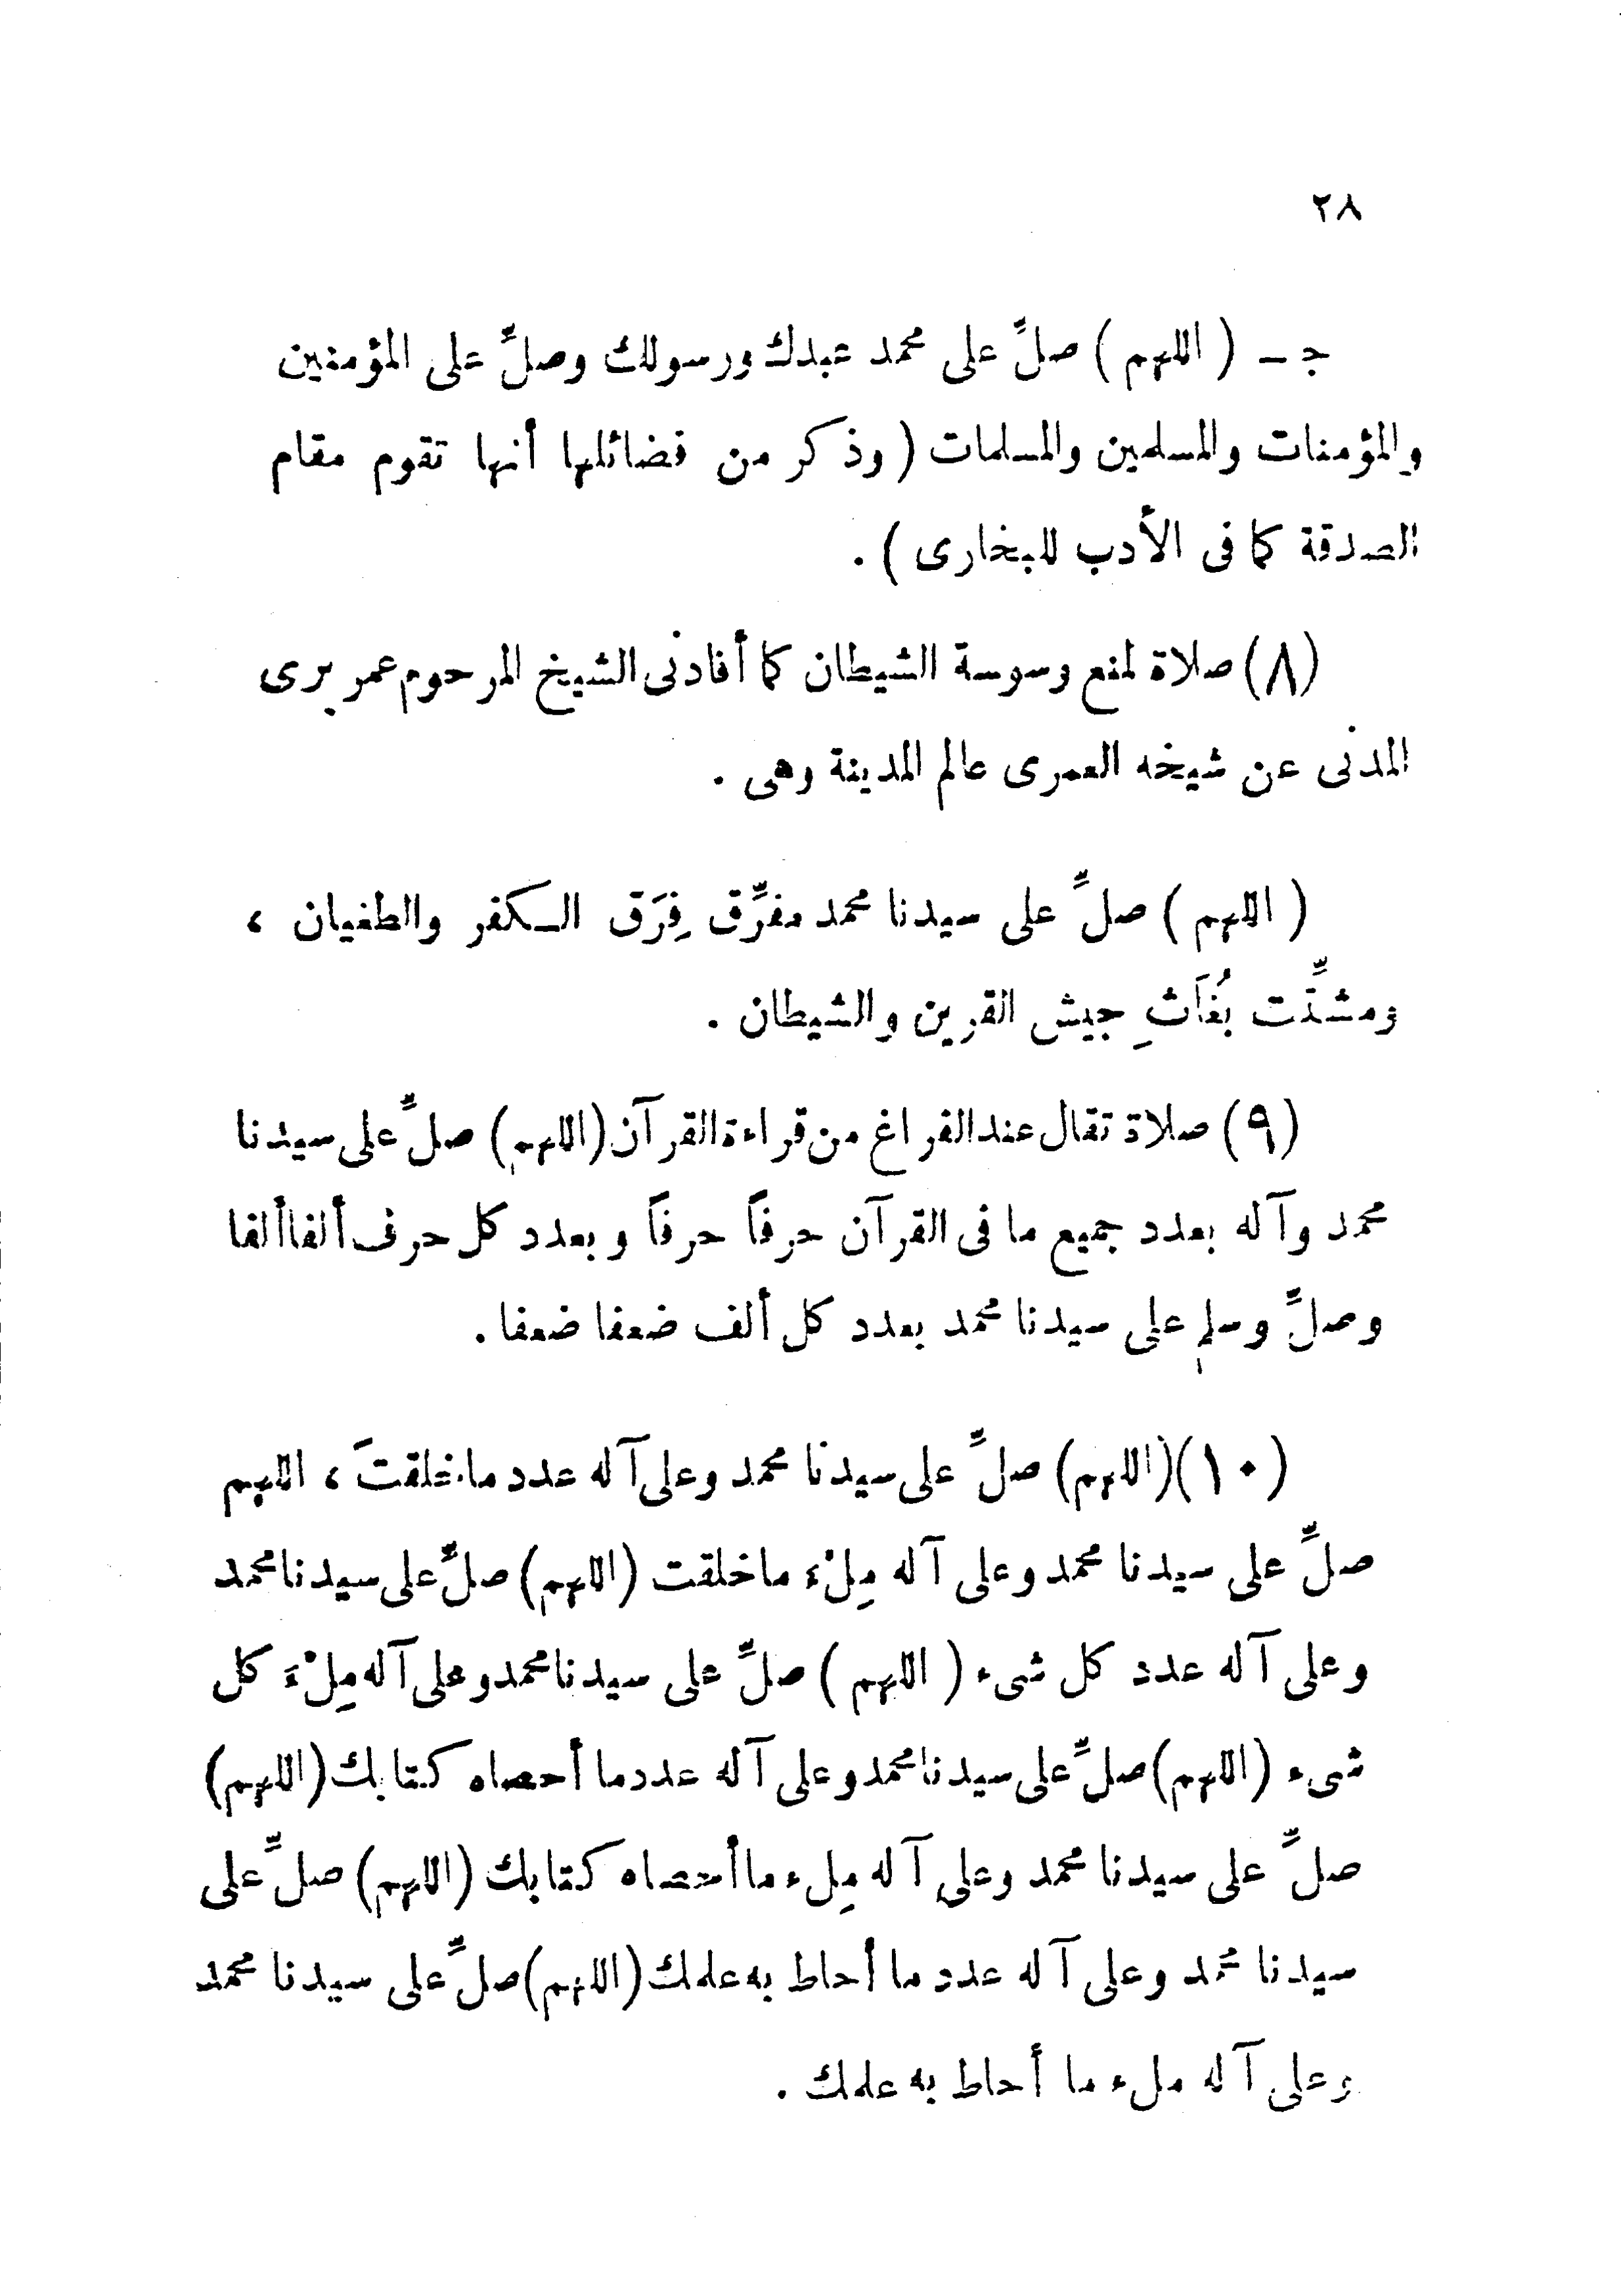 ٢٨
جـ ( اللهم ) صلِّ على محمد عبدك ورسولك وصلِّ على المؤمنين
والمؤمنات والمسلمين والمسلمات ( وذكر من فضائلها أنها تقوم مقام
الصدقة كما فى الأدب للبخارى ) .
(٨) صلاة لمنع وسوسة الشيطان كما أفادنى الشيخ المرحوم عمر برى
المدنى عن شيخه العمرى عالم المدينة وهى .
( اللهم ) صلِّ على سيدنا محمد مفرِّق فِرَق الكفر والطغيان ،
ومشتِّت بُغَاثِ جيش القرين والشيطان .
(٩) صلاة تقال عند الفراغ من قراءة القرآن (اللهم) صلِّ على سيدنا
محمد وآله بعدد جميع ما فى القرآن حرفاً حرفاً وبعدد كل حرف ألفا ألفا
وصلِّ وسلم على سيدنا محمد بعدد كل ألف ضعفا ضعفا .
(١٠) (اللهم) صلِّ على سيدنا محمد وعلى آله عدد ما خلقتَ ، اللهم
صلِّ على سيدنا محمد وعلى آله مِلْءَ ما خلقت (اللهم) صلِّ على سيدنا محمد
وعلى آله عدد كل شىء ( اللهم ) صلِّ على سيدنا محمد وعلى آله مِلْءَ كل
شىء (اللهم) صلِّ على سيدنا محمد وعلى آله عدد ما أحصاه كتابك (اللهم)
صلِّ على سيدنا محمد وعلى آله مِلء ما أحصاه كتابك (اللهم) صلِّ على
سيدنا محمد وعلى آله عدد ما أحاط به علمك (اللهم) صلِّ على سيدنا محمد
وعلى آله ملء ما أحاط به علمك .